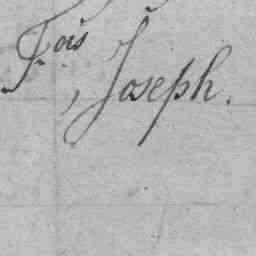 F.ois
, Joseph.